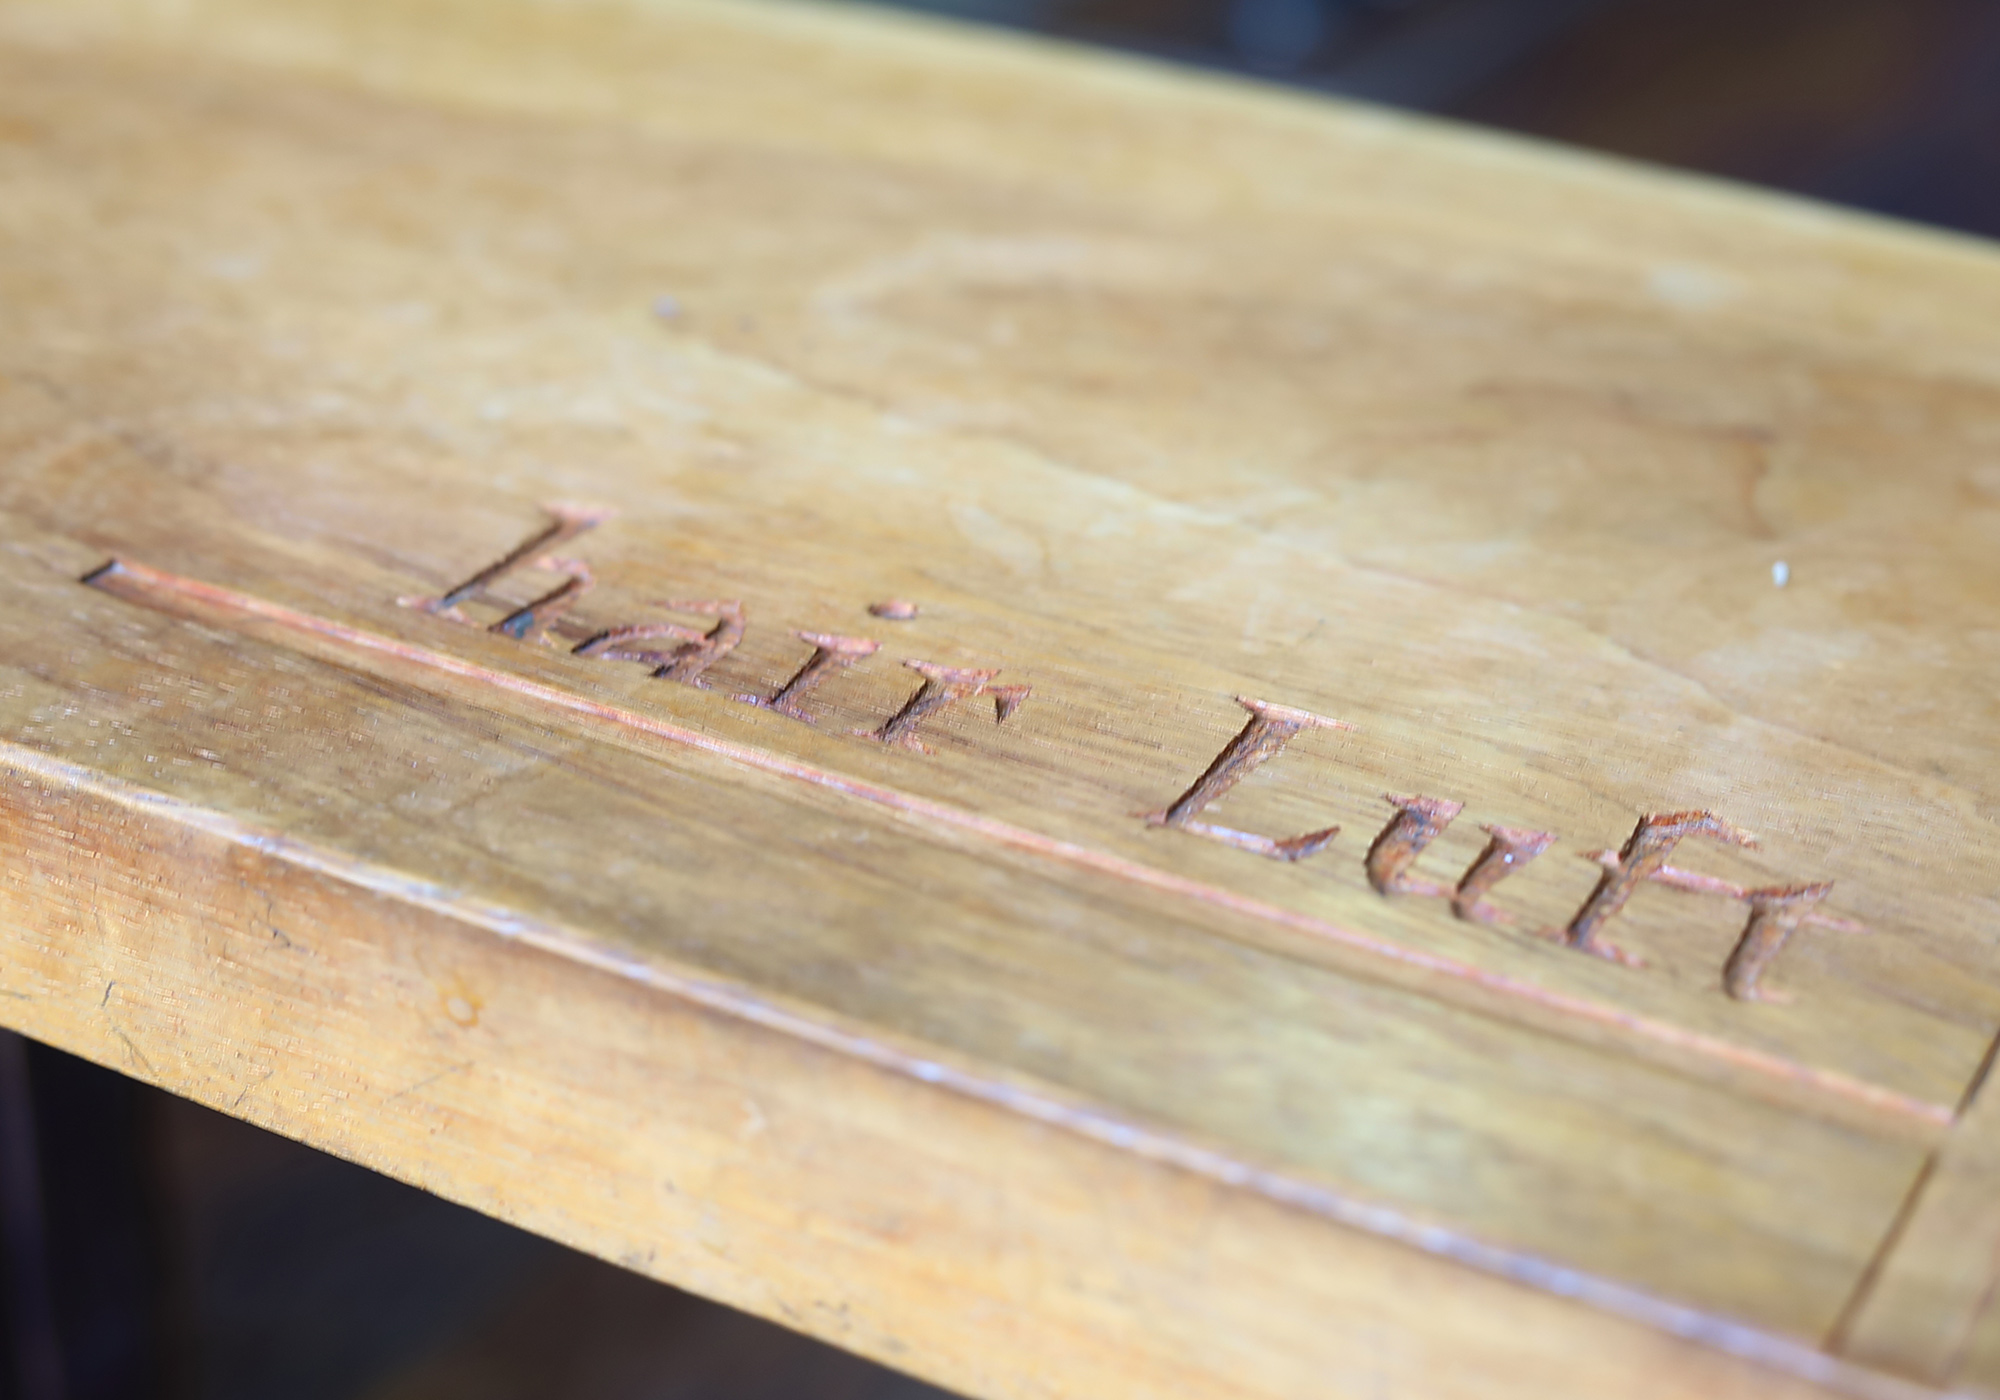 hair Luft